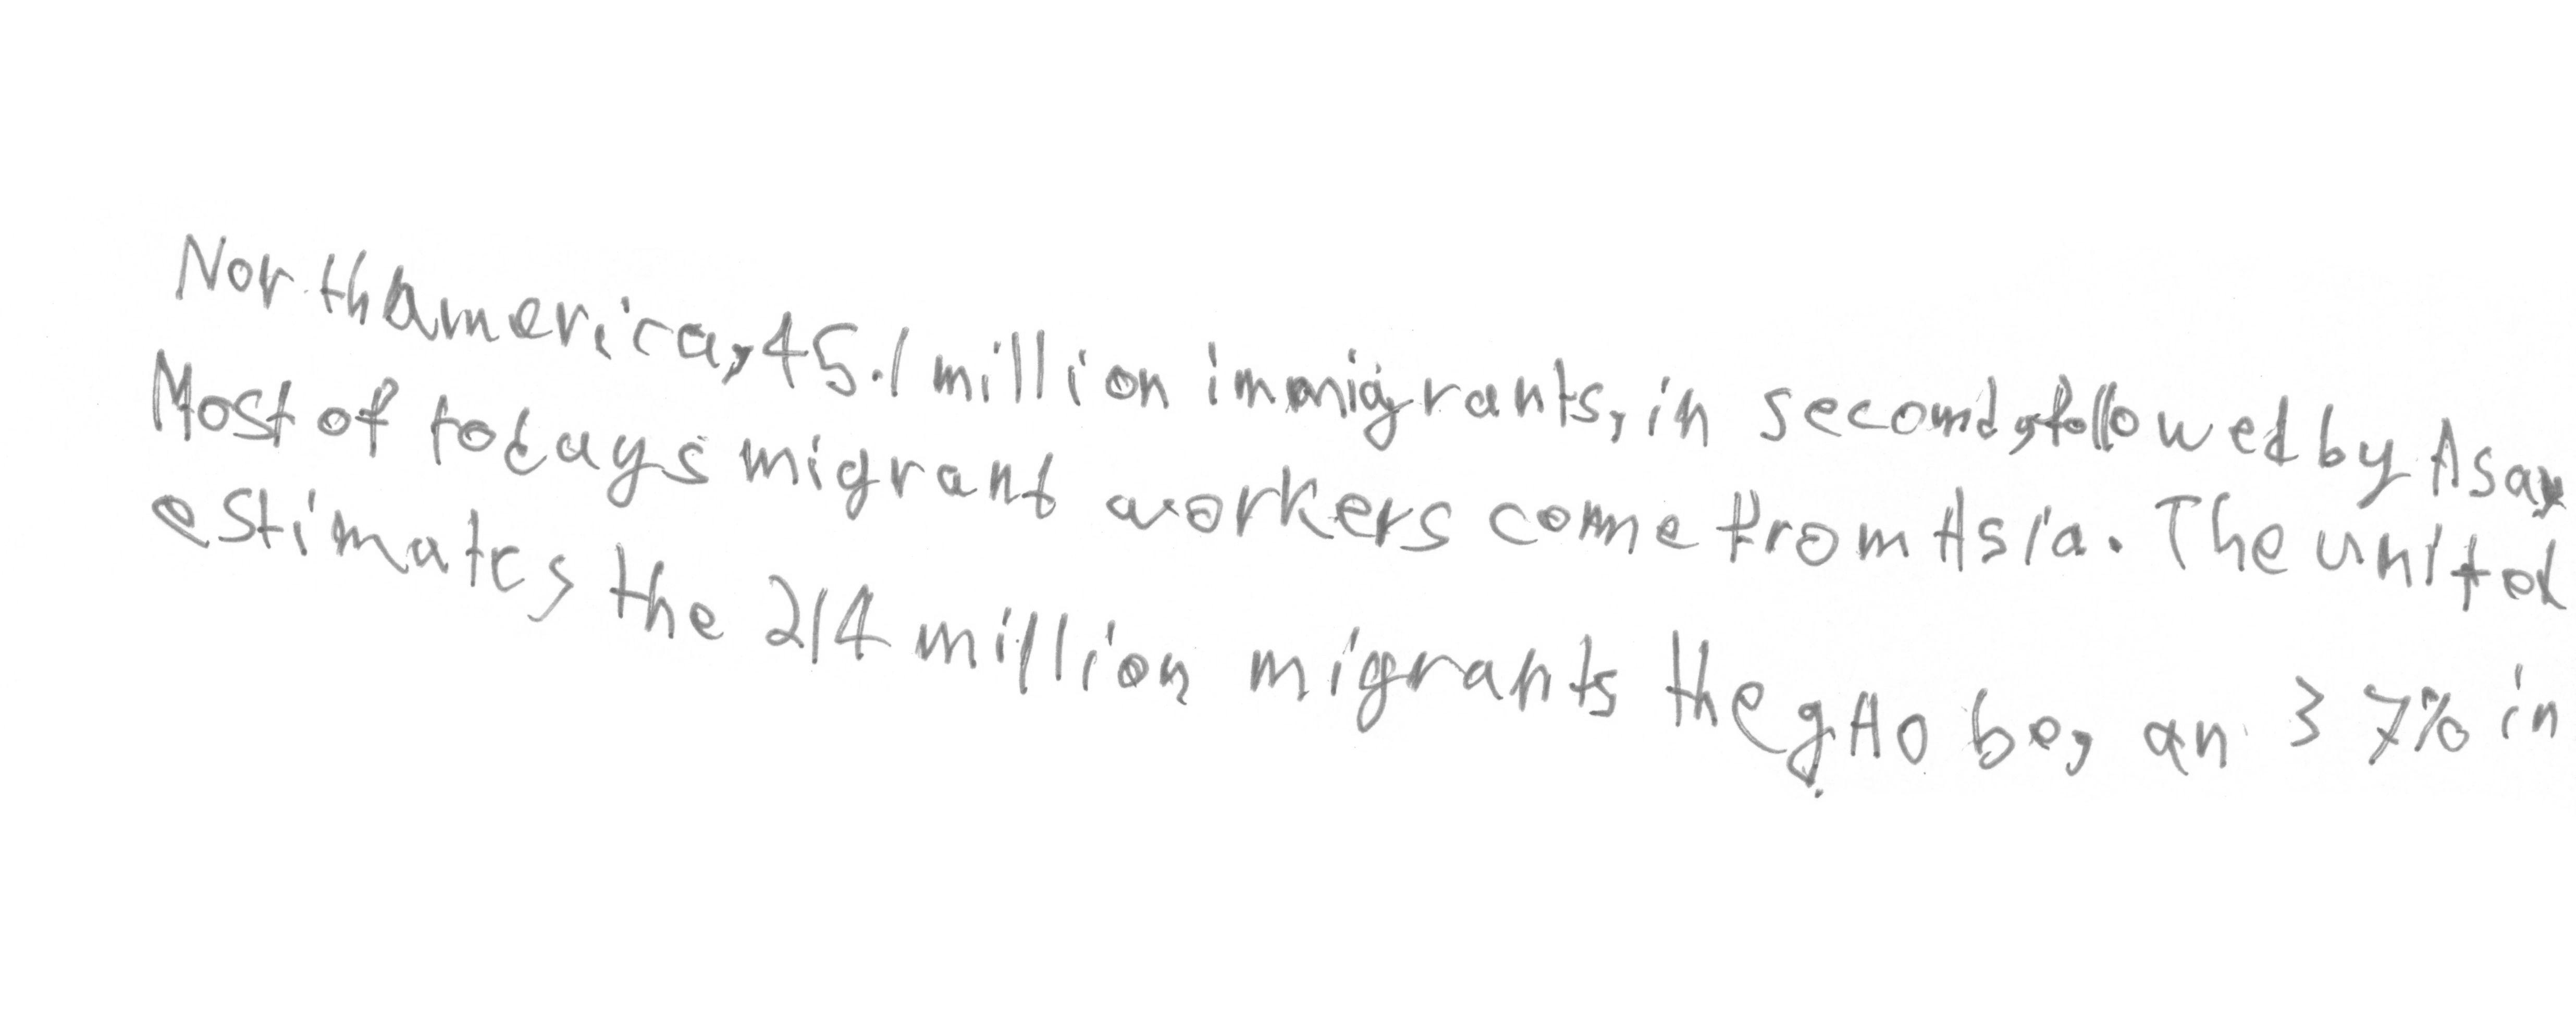 North america, 45.1 million immigrants, in second, followed by
Most of todays migrant workers come from Asia. The united
estimates the 214 million migrants the be, an 37% in